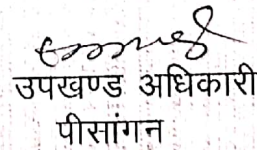 उपखण्ड अधिकारी
पीसांगन